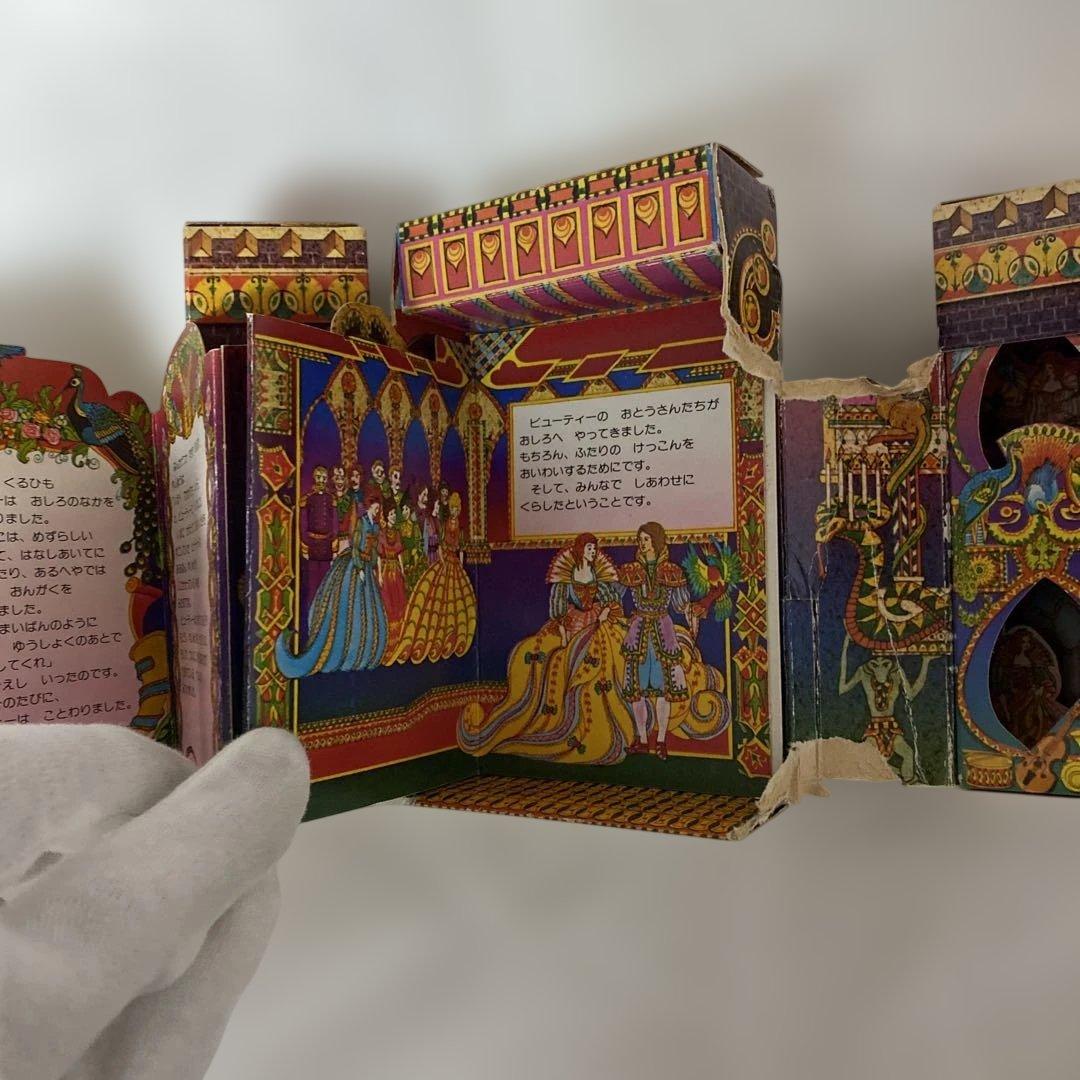 くるひも
は おしろのなかを
りました。
こは、めずらしい
て、はなしあいてに
たり、あるへやでは
おんがくを
ました。
まいばんのように
ゆうしょくのあとで
してくれ」
えし いったのです。
のたびに、
ーは ことわりました。
ビューティーの おとうさんたちが
おしろへ やってきました。
もちろん、ふたりの けっこんを
おいわいするためにです。
そして、みんなで しあわせに
くらしたということです。